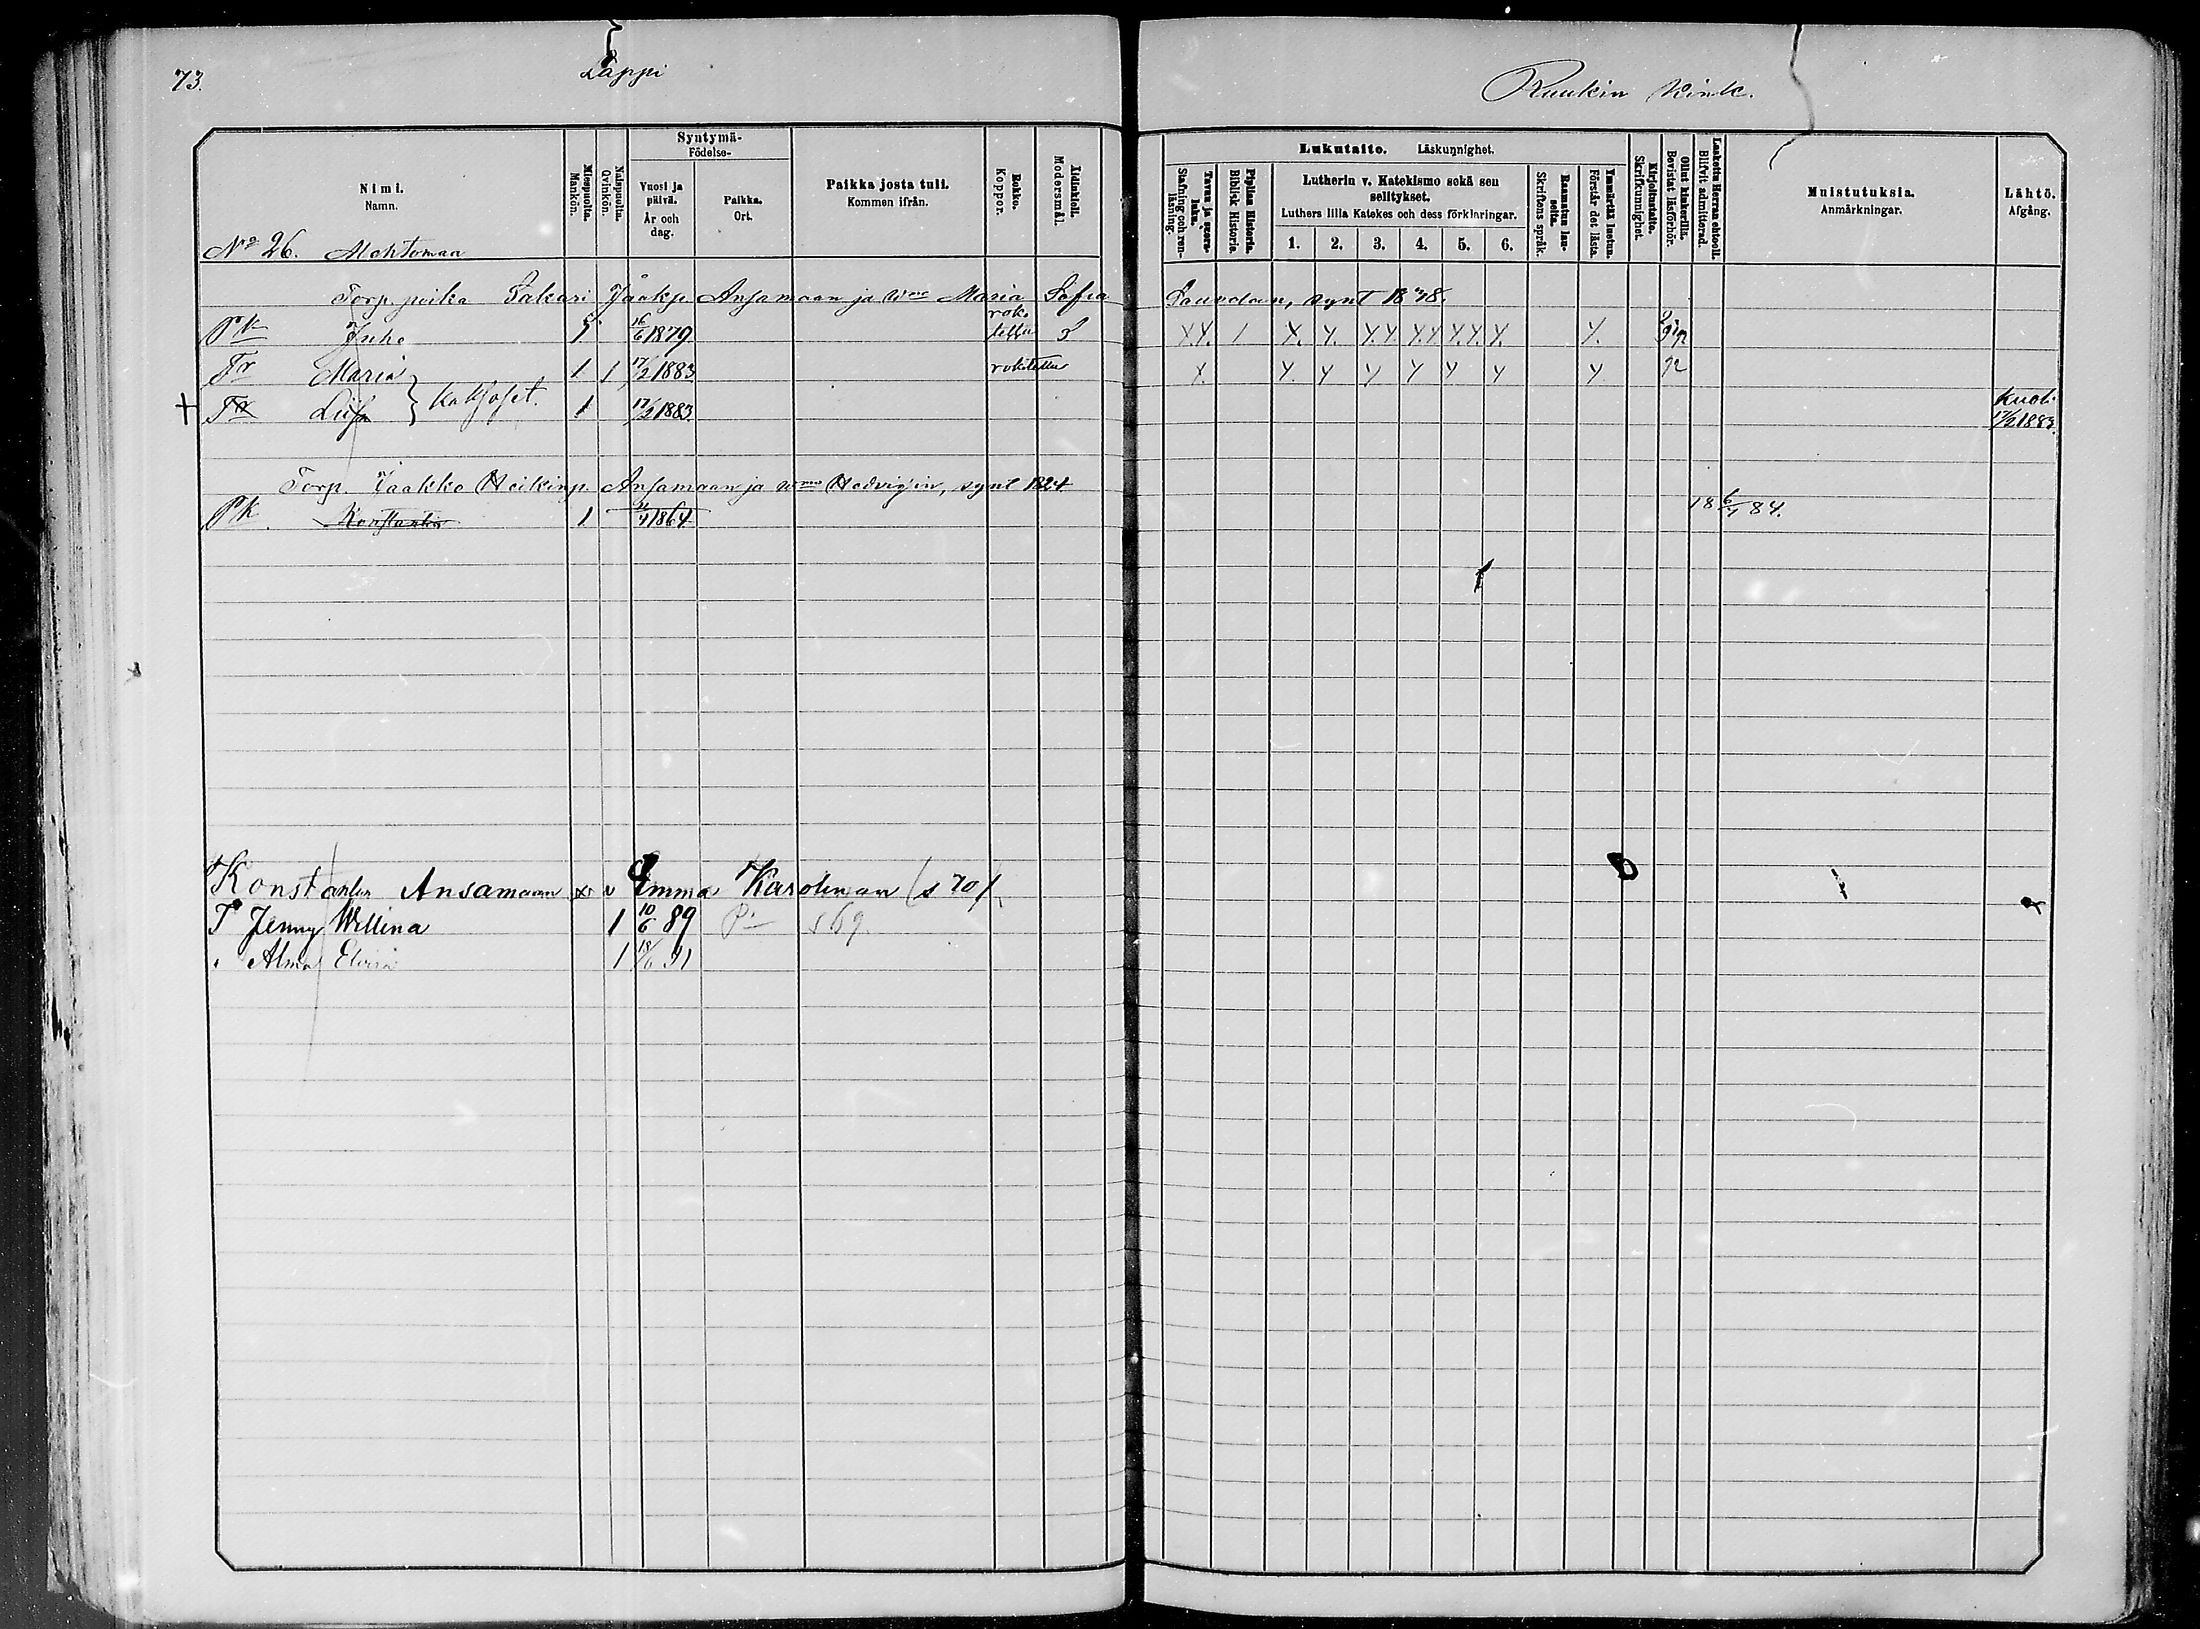 73.
Lappi
Ruukin Kink.
Nimi.
Namn.
Miespuolia.
Mankön.
Naispuolia.
Qvinkön.
Syntymä-
Födelse-
Vuosi ja päivä.
År och dag.
Paikka.
Ort.
Paikka josta tuli.
Kommen ifrån.
Rokko.
Koppor.
Äidinkieli.
Modersmål.
Lukutaito. Läskunnighet.
Tavuu ja suora-luku.
Stafning och ren-läsning.
Piplian Historia.
Biblisk Historia.
Lutherin v. Katekismo sekä sen selitykset.
Luthers lilla Katekes och dess förklaringar.
1. 2. 3. 4. 5. 6.
Raamatun lau-seita.
Skriftens språk.
Ymmärtää luetun.
Förstår det lästa.
Kirjoitustaito.
Skrifkunnighet.
Ollut kinkerillä.
Bevistat läsförhör.
Laskettu Herran ehtoolI.
Blifvit admitterad.
Muistutuksia.
Anmärkningar.
Lähtö.
Afgång.
No 26. Mahtomaa
Torp. poika Sakari Jaakp. Ansamaan ja Maria Sofia Sauvdan, synt 1838.
Pk Juho 1 16/6 1879 roko tettu 3 X.Y. 1 X. Y. Y.Y. Y.Y. Y.Y. Y. Y.
Tr Maria 1 1 17/2 1883 rokotettu X Y. Y Y Y Y Y Y 92
+ Tr Liisa } kaksoset. 1 17/2 1883. kuol. 17/2 1883.
Torp. Jaakko Heikinp. Ansamaan ja Hedvigin, synt 1824
Pk. Konstantin 1 1864 18 6/7 84.
Konstantin Ansamaan v Emma Karolinan (s 70)
T Jenny Wellina 1 10/6 89 s 69.
" Alma Elvira 1 18/6 91